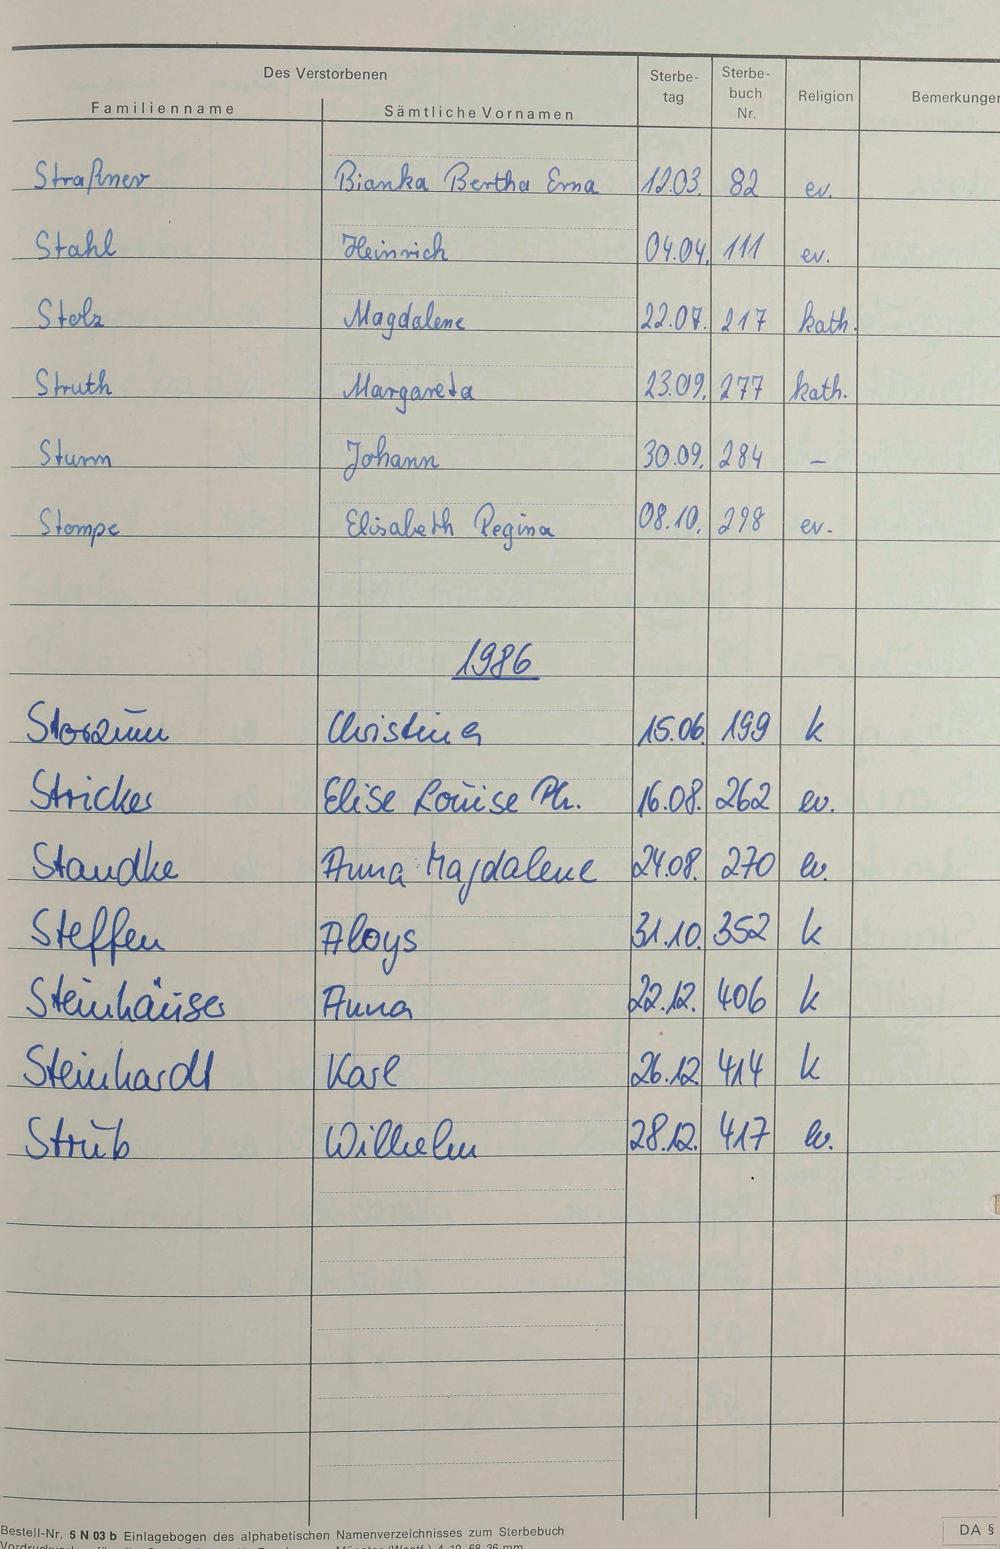 Des Verstorbenen
Familienname Sämtliche Vornamen Sterbe-tag Sterbe-buch Nr. Religion Bemerkunger
Straßner Bianka Bertha Erna 12.03. 82 ev.
Stahl Heinrich 04.04. 111 ev.
Stolz Magdalene 22.07. 217 kath.
Struth Margareta 23.09. 277 kath.
Sturm Johann 30.09. 284 –
Stompe Elisabeth Regina 08.10. 298 ev.
1986
Christina 15.06 199 k
Stricker Elise Louise Ph. 16.08. 262 ev.
Staudke Anna Magdalene 24.08. 270 ev.
Steffen Aloys 31.10. 352 k
Steinhäuser Anna 22.12. 406 k
Steinhardt Karl 26.12 414 k
Strub Wilhelm 28.12. 417 ev.
Bestell-Nr. S N 03 b Einlagebogen des alphabetischen Namenverzeichnisses zum Sterbebuch
DA §